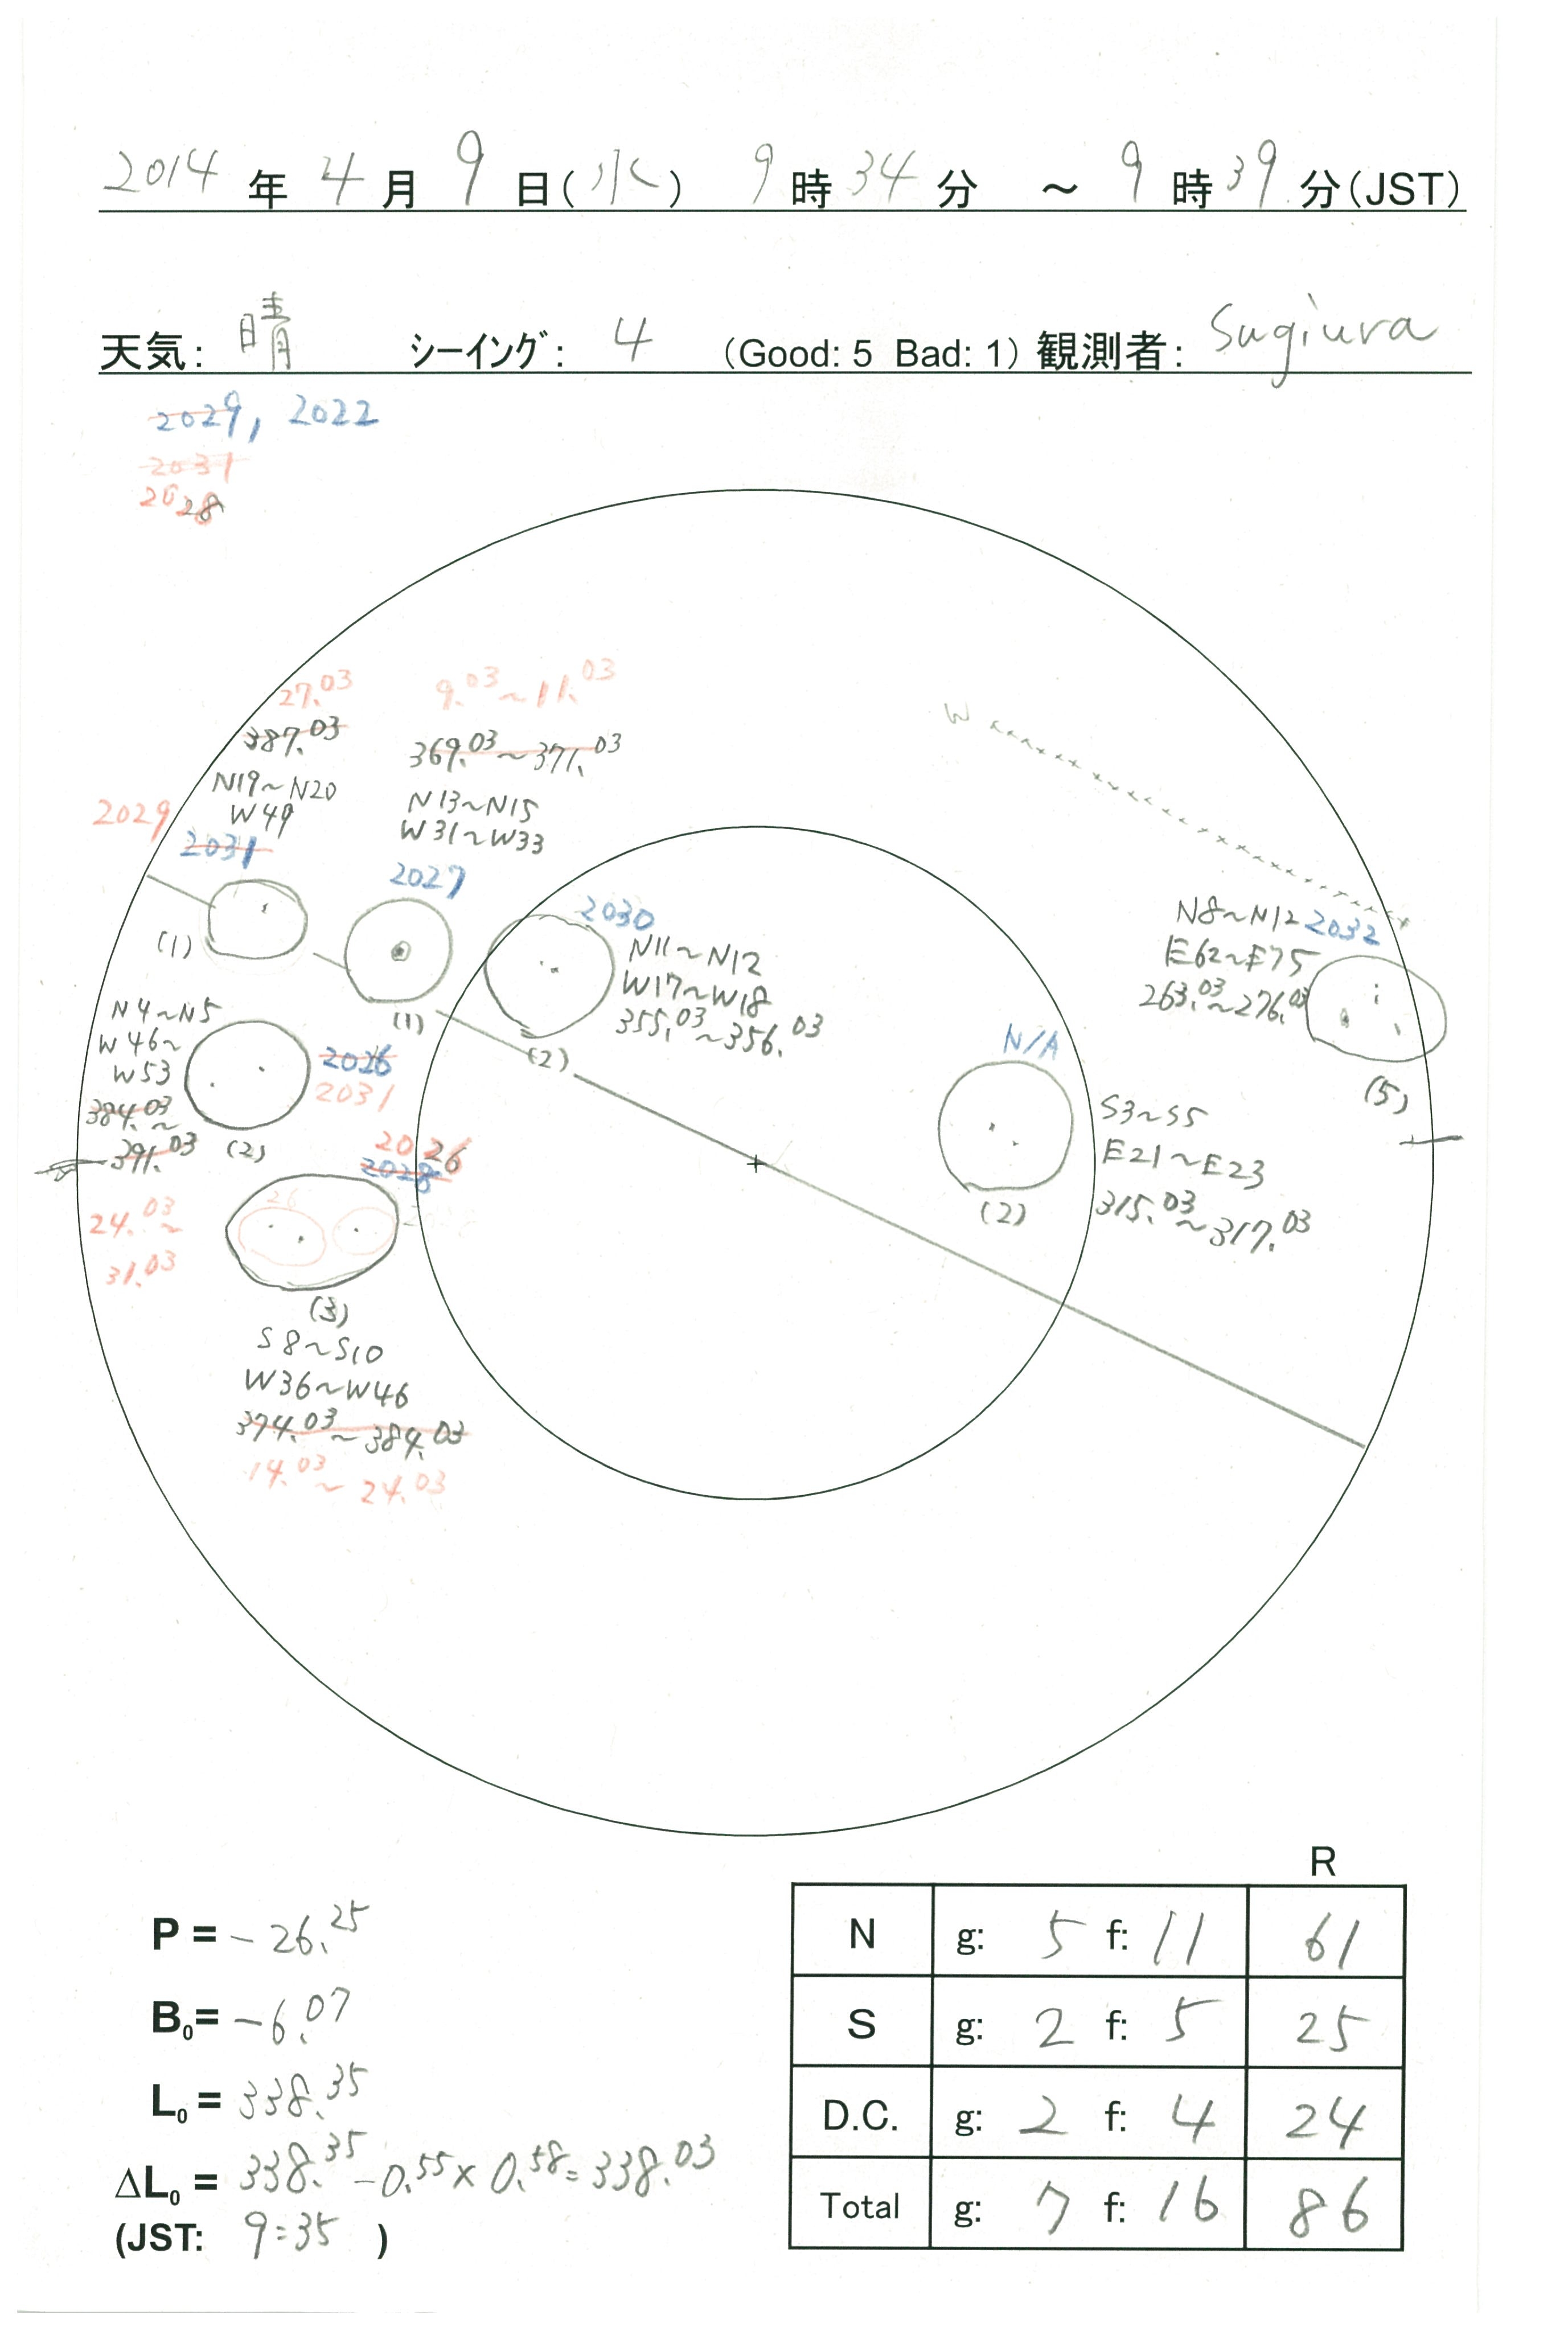 2014 年 4 月 9 日(水) 9 時 34 分 ~ 9 時 39 分(JST)
天気: 晴 シーイング: 4 (Good: 5 Bad: 1) 観測者: Sugiura
2029, 2022
2031
2028
27.03
387.03
N19~N20
W49
2029
2031
(1)
9.03~11.03
369.03~371.03
N13~N15
W31~W33
2027
(1)
2030
N11~N12
W17~W18
355.03~356.03
(2)
W
N8~N12 2032
E62~E75
263.03~276.03
(5)
N4~N5
W46~
W53
384.03~
391.03
2026
2031
(2)
24.03~
31.03
N/A
S3~S5
E21~E23
315.03~317.03
(2)
2026
2028
26
(3)
S8~S10
W36~W46
374.03~384.03
14.03~24.03
P = -26.25
B0 = -6.07
L0 = 338.35
ΔL0 = 338.35 - 0.55 × 0.58 = 338.03
(JST: 9:35 )
R
N g: 5 f: 11 61
S g: 2 f: 5 25
D.C. g: 2 f: 4 24
Total g: 7 f: 16 86